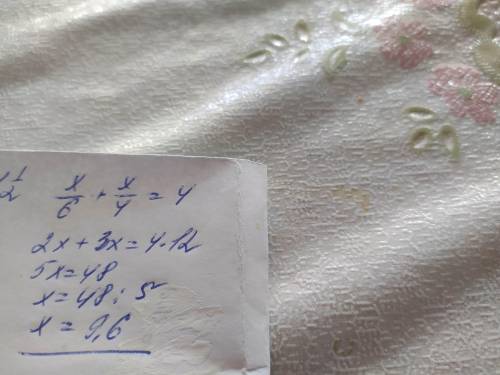 x/6 + x/4 = 4
2x + 3x = 4·12
5x = 48
x = 48 : 5
x = 9,6